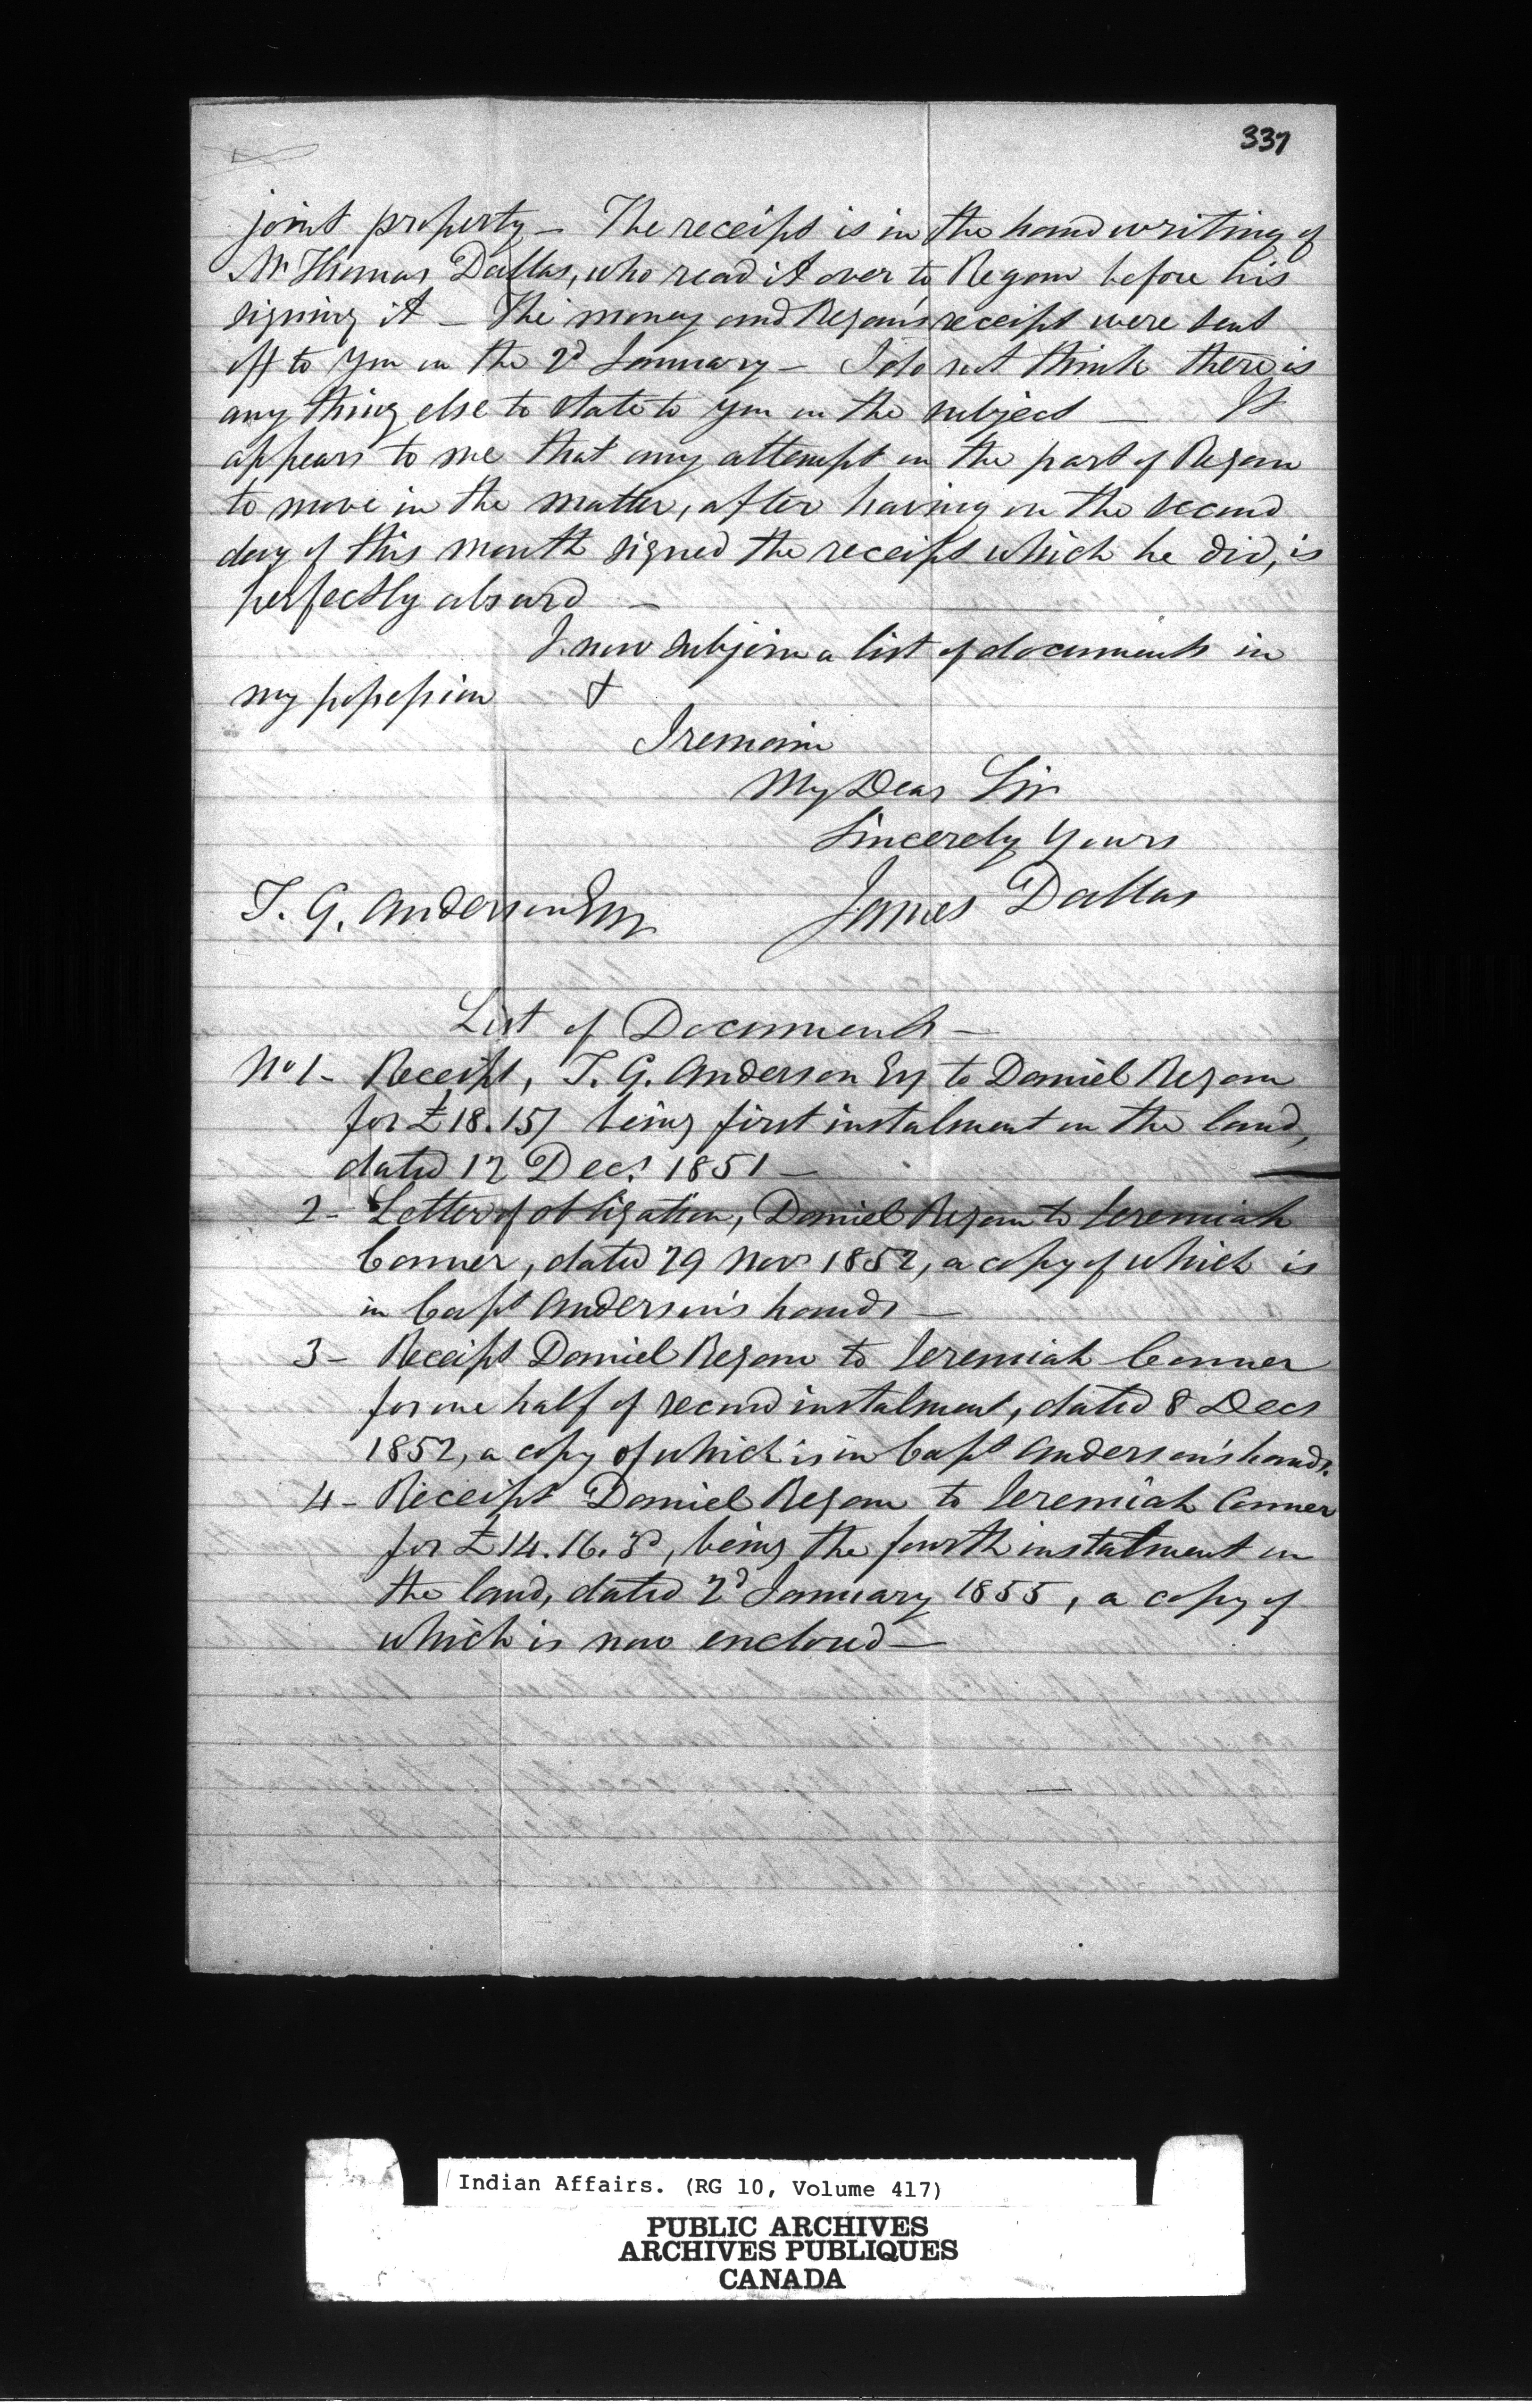 337
joint property – The receipt is in the hand writing of
Mr Thomas Dallas, who read it over to Regan before his
signing it – The money and Regan's receipt were sent
off to you on the 2d January – I do not think there is
any thing else to state to you on the subject – It
appears to me that any attempt on the part of Regan
to move in the matter, after having on the second
day of this month signed the receipt which he did, is
perfectly absurd –
I now subjoin a list of documents in
my possession &
I remain
My Dear Sir
Sincerely Yours
James Dallas
T. G. Anderson Esq
List of Documents –
No 1 – Receipt, T. G. Anderson Esq to Daniel Regan
for £18.15/ being first instalment on the land,
dated 12 Decr 1851 –
2 – Letter of obligation, Daniel Regan to Jeremiah
Conner, dated 29 Novr 1852, a copy of which is
in Capt Anderson's hands –
3 – Receipt Daniel Regan to Jeremiah Conner
for one half of second instalment, dated 8 Decr
1852, a copy of which is in Capt Anderson's hands.
4 – Receipt Daniel Regan to Jeremiah Conner
for £14.16.3d, being the fourth instalment on
the land, dated 2d January 1855, a copy of
which is now enclosed –
Indian Affairs. (RG 10, Volume 417)
PUBLIC ARCHIVES
ARCHIVES PUBLIQUES
CANADA